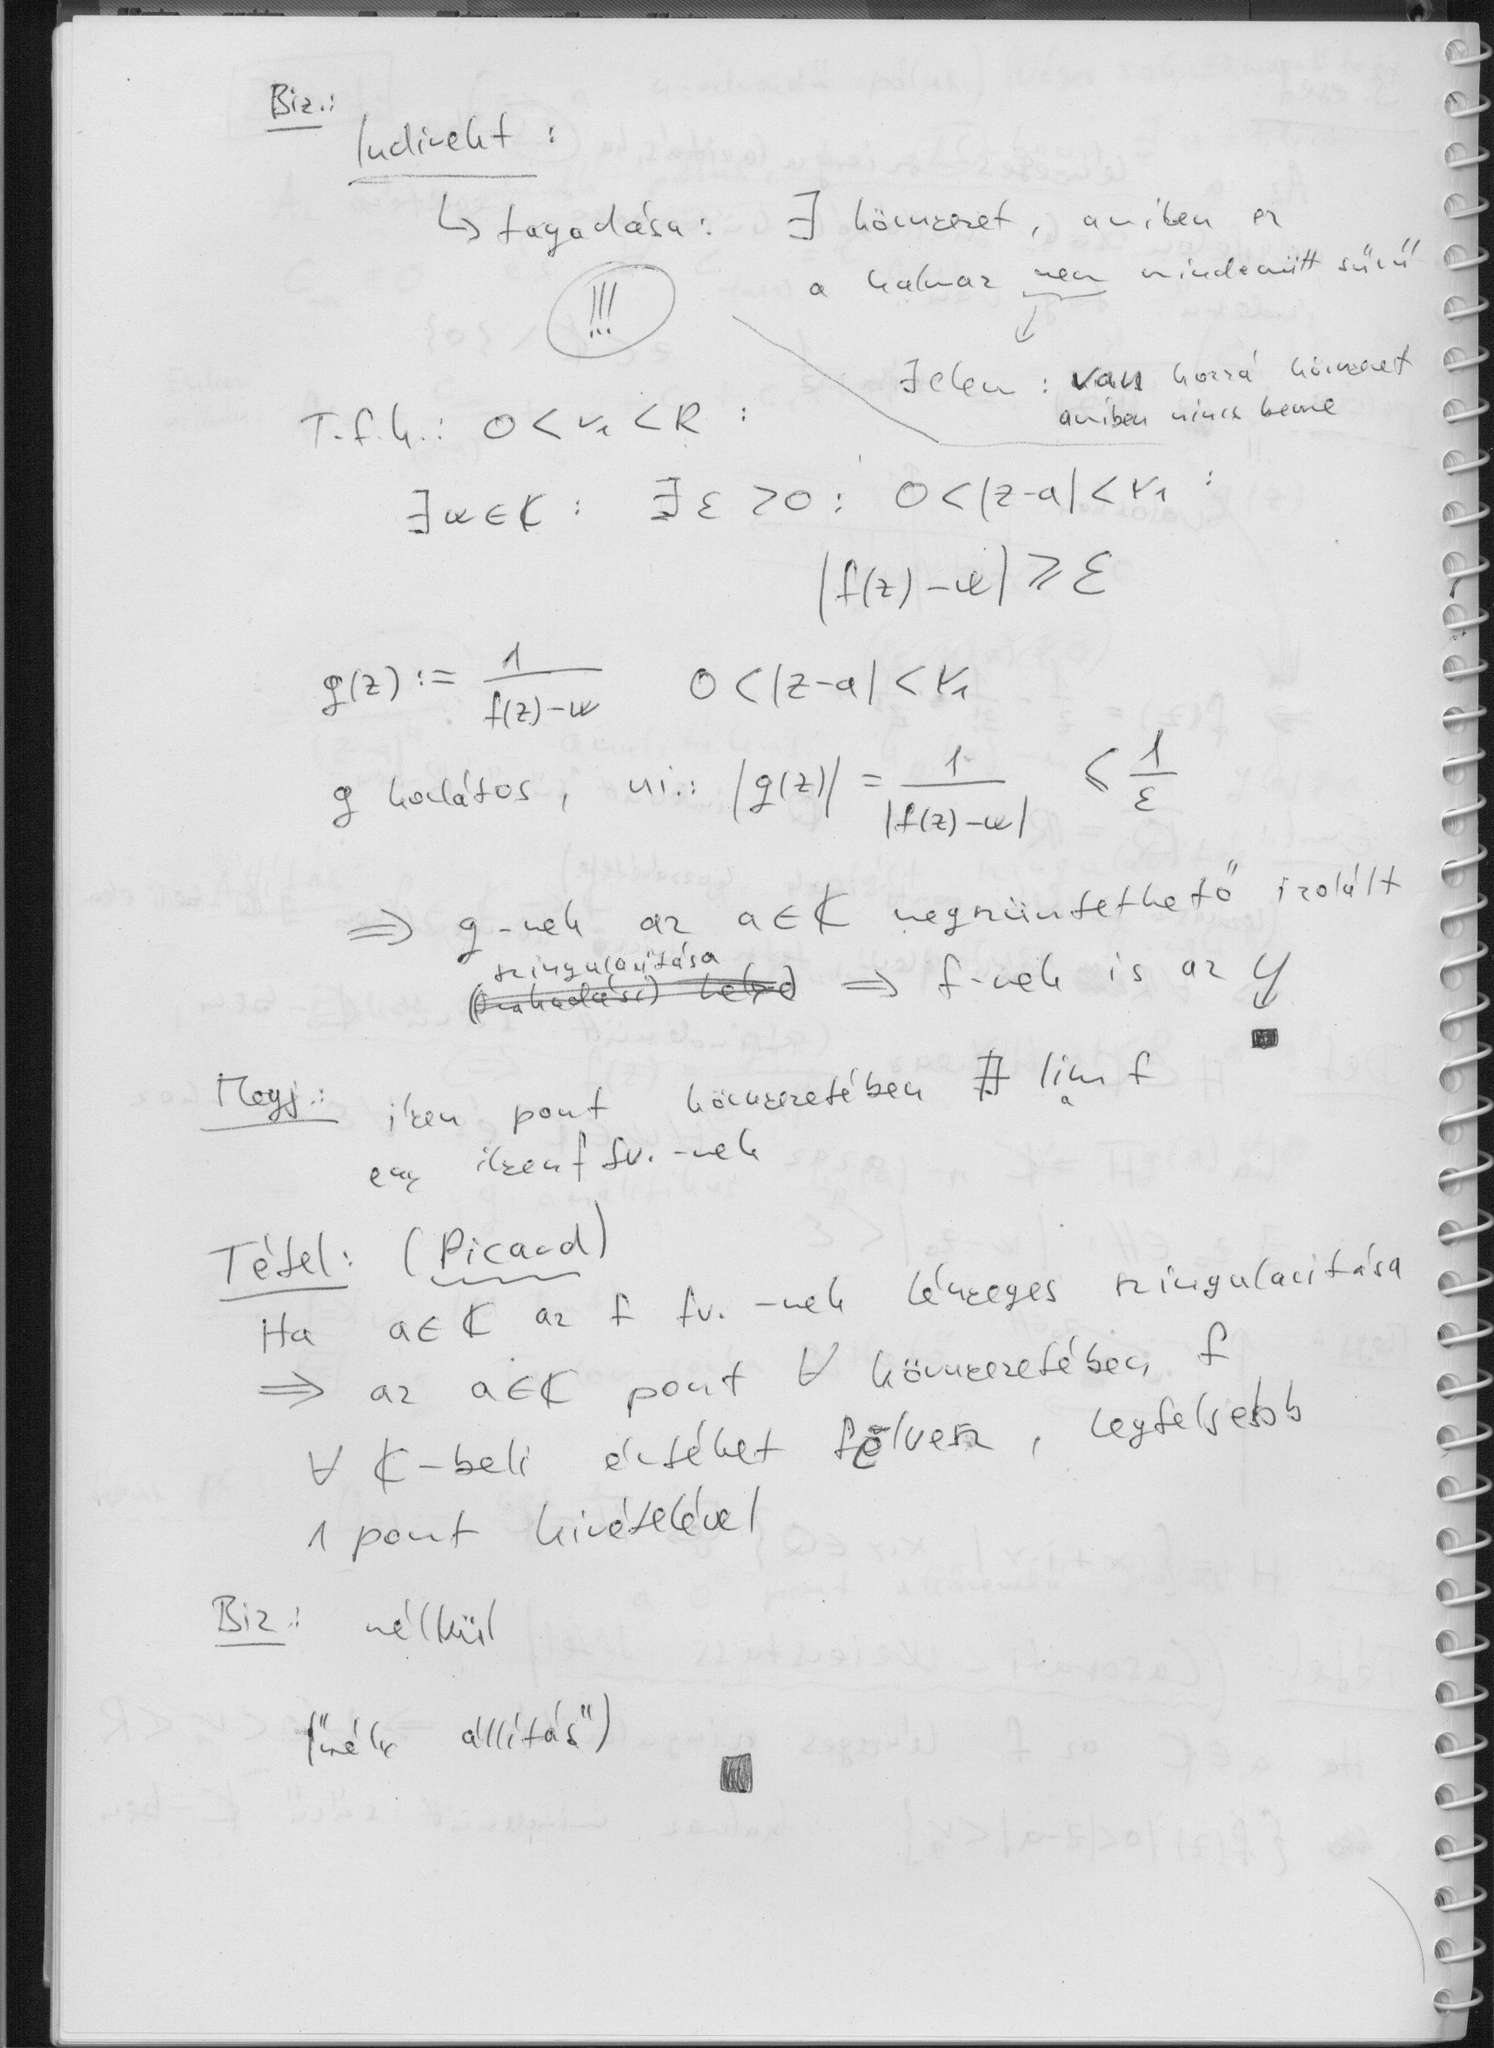 Biz.:
Indirekt:
↳ tagadása: ∃ környezet, amiben ez
a halmaz nem mindenütt sűrű
!!!
∃ elem: van hozzá környezet
amiben nincs benne
T.f.h.: 0 < r₁ < R :
∃ w ∈ ℂ : ∃ ε > 0 : 0 < |z-a| < r₁ :
|f(z) - w| ⩾ ε
g(z) := 1/(f(z)-w) 0 < |z-a| < r₁
g korlátos, ui.: |g(z)| = 1/|f(z)-w| ⩽ 1/ε
⇒ g-nek az a ∈ ℂ megszüntethető izolált
szingularitása ⇒ f-nek is az ↯
■
Megj.: ilyen pont környezetében ∄ lim_a f
egy ilyen f fv.-nek
Tétel: (Picard)
Ha a ∈ ℂ az f fv.-nek lényeges szingularitása
⇒ az a ∈ ℂ pont ∀ környezetében f
∀ ℂ-beli értéket fölvesz, legfeljebb
1 pont kivételével
Biz.: nélkül
("mély állítás")
■